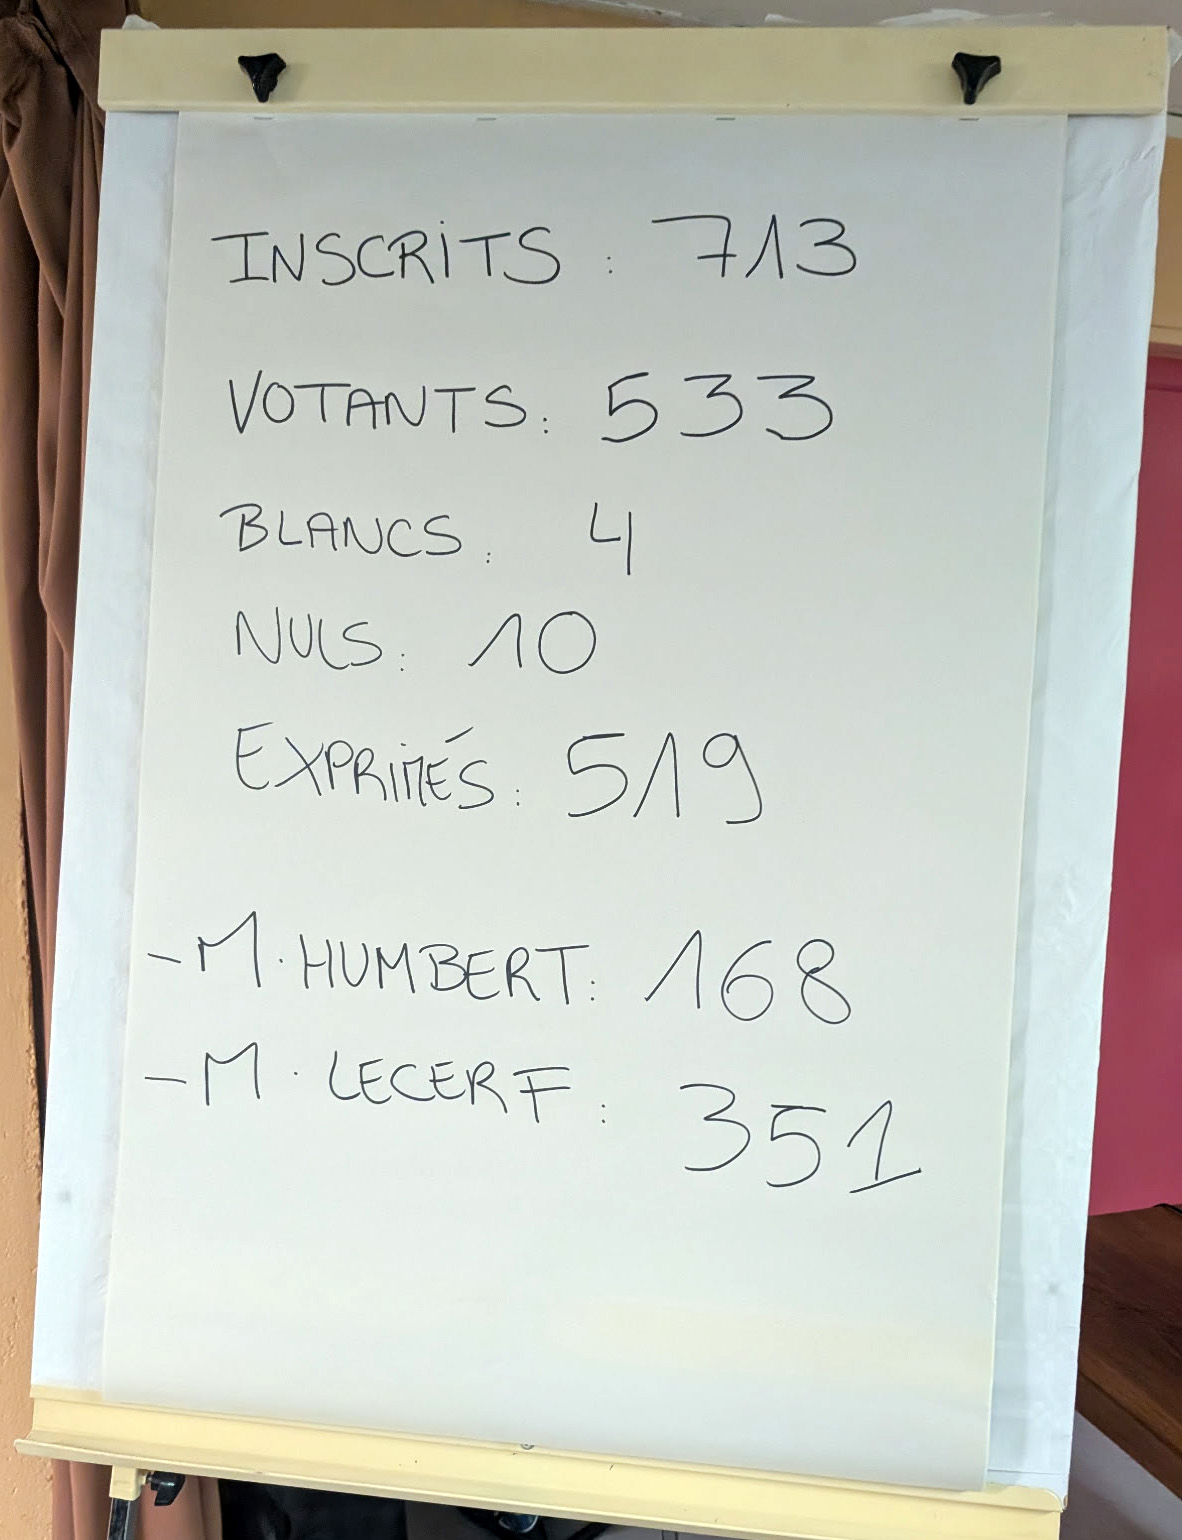 INSCRITS : 713
VOTANTS : 533
BLANCS : 4
NULS : 10
EXPRIMÉS : 519
- M. HUMBERT : 168
- M. LECERF : 351